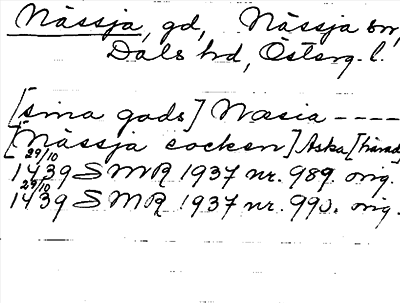 Nässja, gd, Nässja sn,
Dals hd, Österg. l.
[sina gods] Næsia ----
[Nässja socken] Aska [härad]
29/10 1439 SMR 1937 nr. 989. orig.
29/10 1439 SMR 1937 nr. 990. orig.